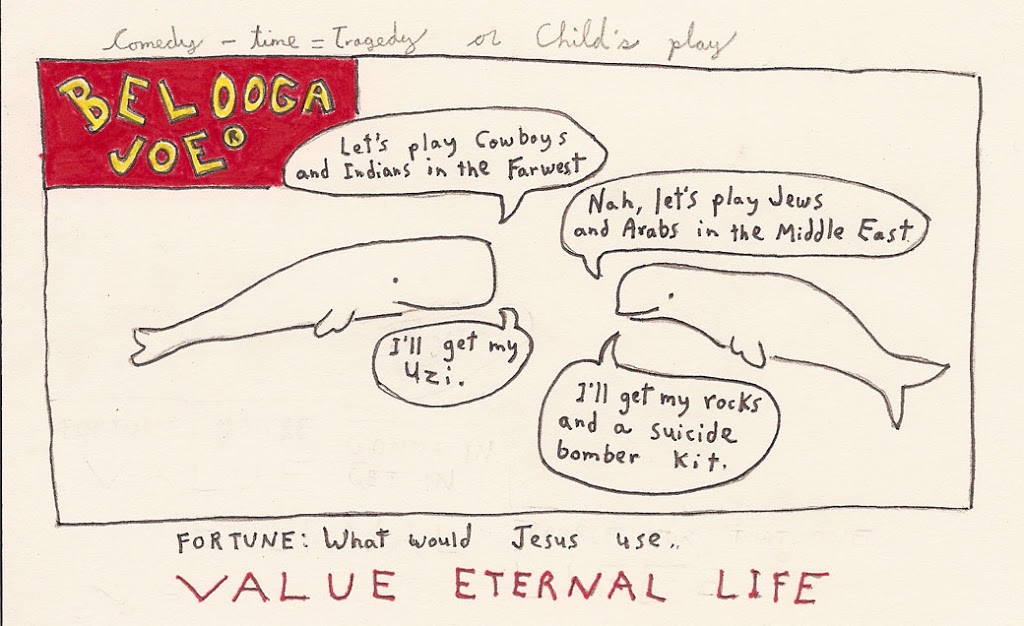 Comedy - time = Tragedy or Child's play
BELOOGA
JOE®
Let's play Cowboys
and Indians in the Farwest
Nah, let's play Jews
and Arabs in the Middle East
I'll get my
Uzi.
I'll get my rocks
and a suicide
bomber kit.
FORTUNE: What would Jesus use..
VALUE ETERNAL LIFE